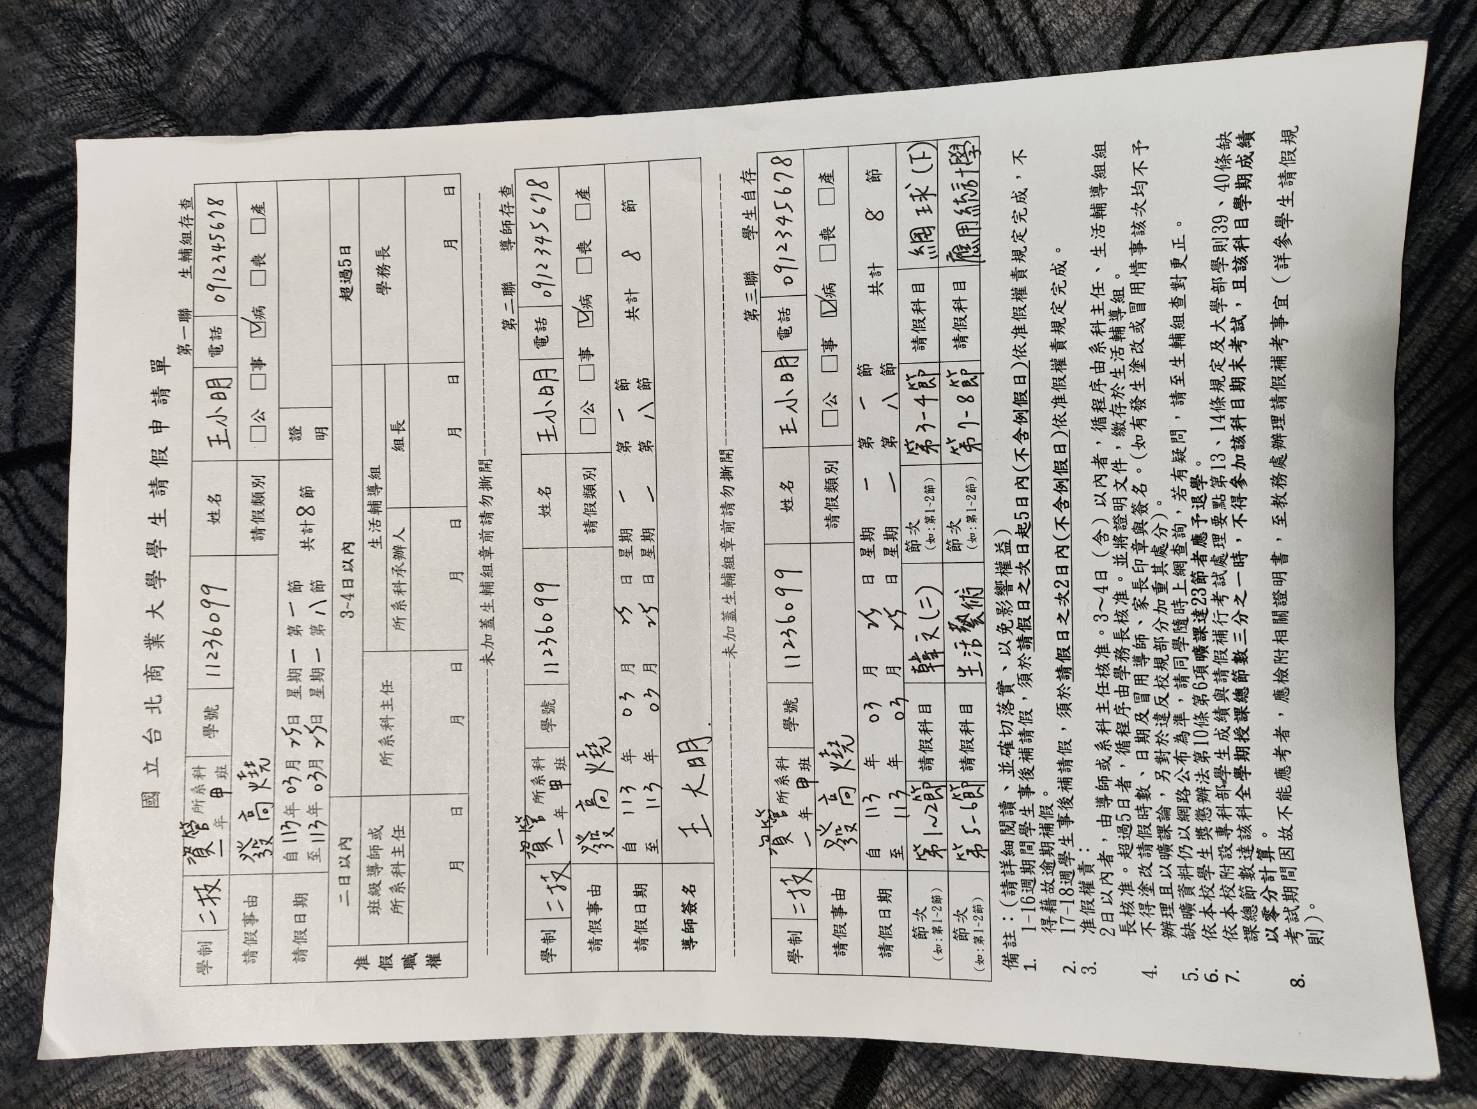 國立台北商業大學學生請假申請單
第一聯 生輔組存查
學制 二技 資管 所系科 一年甲班 學號 11236099 姓名 王小明 電話 0912345678
請假事由 發高燒 請假類別 □公 □事 ☑病 □喪 □產
請假日期 自113年03月25日 星期一 第一節 共計8節 證明
至113年03月25日 星期一 第八節
准假職權 二日以內 3~4日以內 超過5日
班級導師或所系科主任 所系科主任 生活輔導組 學務長
所系科承辦人 組長
月 日 月 日 月 日 月 日 月 日
未加蓋生輔組章前請勿撕開
第二聯 導師存查
學制 二技 資管 所系科 一年甲班 學號 11236099 姓名 王小明 電話 0912345678
請假事由 發高燒 請假類別 □公 □事 ☑病 □喪 □產
請假日期 自 113 年 03 月 25 日 星期 一 第 一 節 共計 8 節
至 113 年 03 月 25 日 星期 一 第 八 節
導師簽名 王大明.
未加蓋生輔組章前請勿撕開
第三聯 學生自存
學制 二技 資管 所系科 一年甲班 學號 11236099 姓名 王小明 電話 0912345678
請假事由 發高燒 請假類別 □公 □事 ☑病 □喪 □產
請假日期 自 113 年 03 月 25 日 星期 一 第 一 節 共計 8 節
至 113 年 03 月 25 日 星期 一 第 八 節
節次(如:第1-2節) 第1~2節 請假科目 韓文(二) 節次(如:第1-2節) 第3-4節 請假科目 網球(下)
節次(如:第1-2節) 第5-6節 請假科目 生活藝術 節次(如:第1-2節) 第7-8節 請假科目 應用統計學
備註：(請詳細閱讀、並確切落實、以免影響權益)
1. 1-16週期間學生事後補請假，須於請假日之次日起5日內(不含例假日)依准假權責規定完成，不
得藉故逾期補假。
2. 17-18週學生事後補請假，須於請假日之次2日內(不含例假日)依准假權責規定完成。
3. 准假權責：
2日以內者，由導師或系科主任核准。3～4日（含）以內者，循程序由系科主任、生活輔導組組
長核准。超過5日者，循程序由學務長核准。並將證明文件，繳存於生活輔導組。
4. 不得塗改請假時數、日期及冒用導師、家長印章與簽名。(如有發生塗改或冒用情事該次均不予
辦理且以曠課論，另對於違反校規部分加重其處分)。
5. 缺曠資料仍以網路公布為準，請同學隨時上網查詢，若有疑問，請至生輔組查對更正。
6. 依本校學生獎懲辦法第10條第6項曠課達23節者應予退學。
7. 依本校附設專科部學生成績與請假補行考試處理要點第13、14條規定及大學部學則39、40條缺
課總節數達該科全學期授課總節數三分之一時，不得參加該科目期末考試，且該科目學期成績
以零分計算。
8. 考試期間因故不能應考者，應檢附相關證明書，至教務處辦理請假補考事宜（詳參學生請假規
則）。